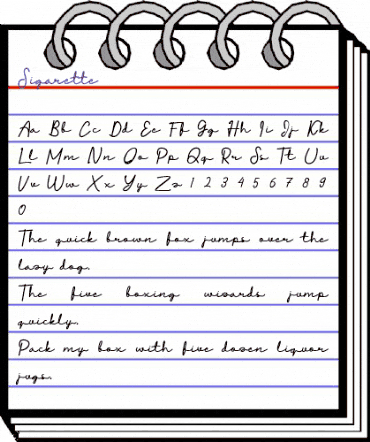 Sigarette
Aa Bb Cc Dd Ee Ff Gg Hh Ii Jj Kk
Ll Mm Nn Oo Pp Qq Rr Ss Tt Uu
Vv Ww Xx Yy Zz 1 2 3 4 5 6 7 8 9
0
The quick brown fox jumps over the
lazy dog.
The five boxing wizards jump
quickly.
Pack my box with five dozen liquor
jugs.